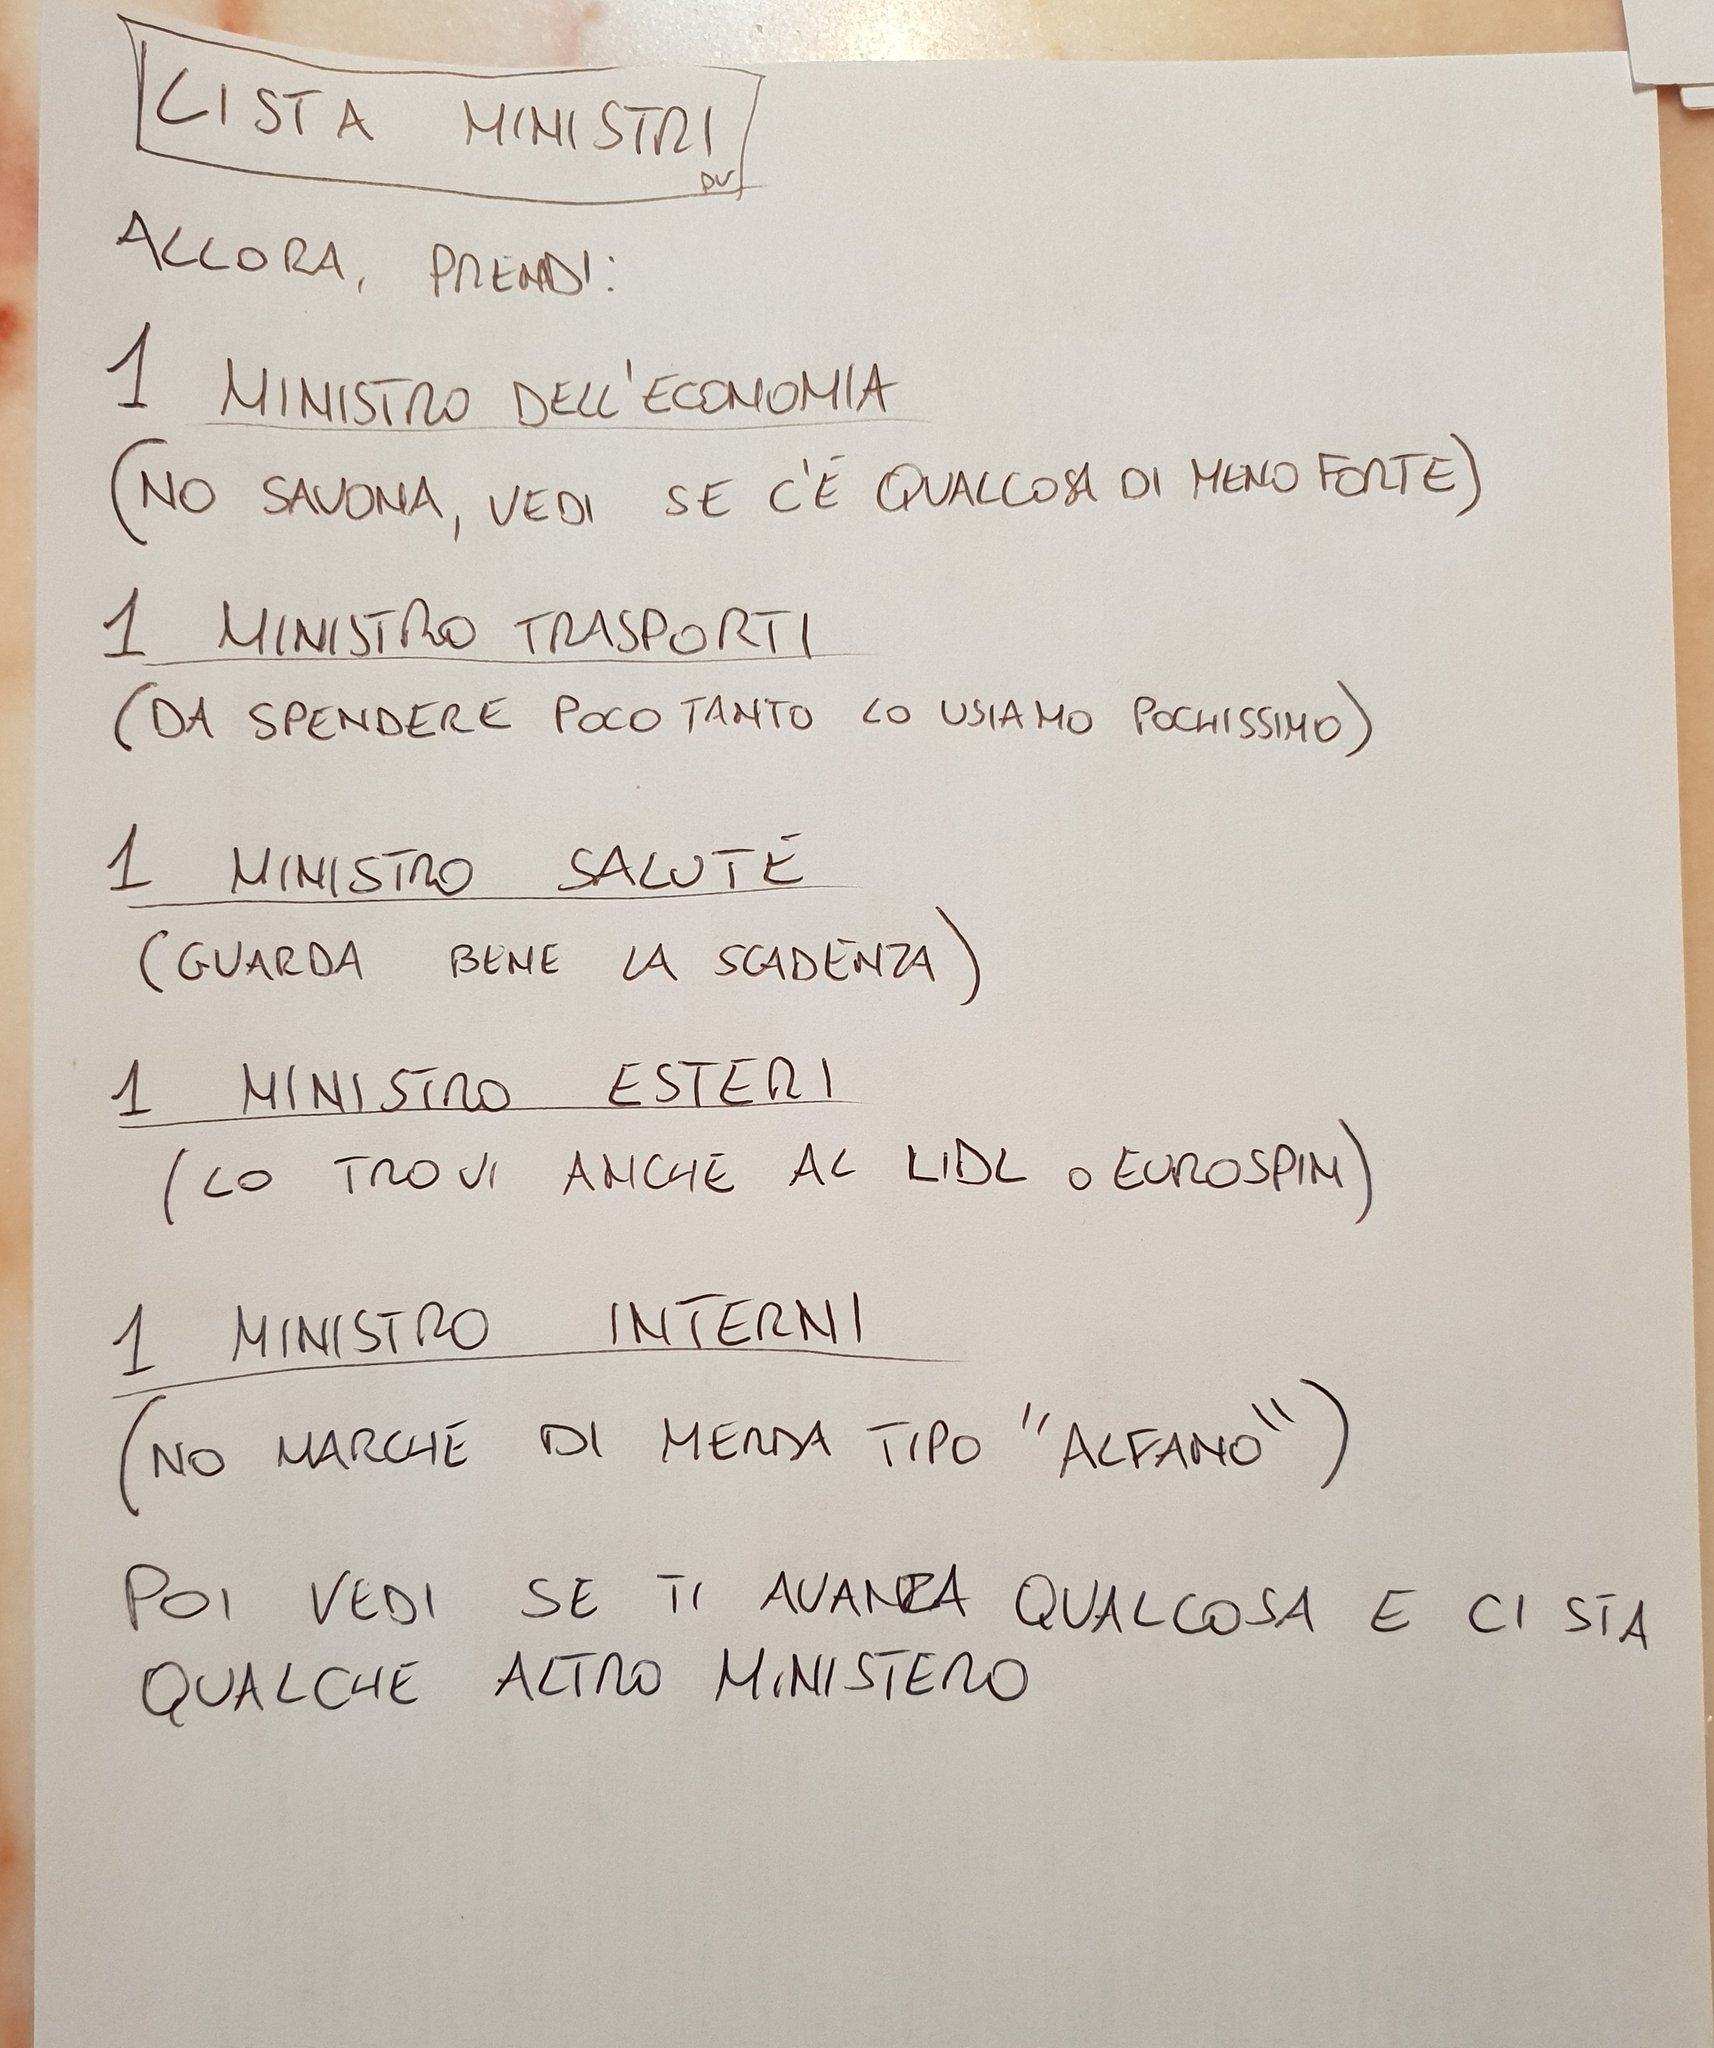 LISTA MINISTRI
ALLORA, PRENDI:
1 MINISTRO DELL'ECONOMIA
(NO SAVONA, VEDI SE C'È QUALCOSA DI MENO FORTE)
1 MINISTRO TRASPORTI
(DA SPENDERE POCO TANTO LO USIAMO POCHISSIMO)
1 MINISTRO SALUTE
(GUARDA BENE LA SCADENZA)
1 MINISTRO ESTERI
(LO TROVI ANCHE AL LIDL O EUROSPIN)
1 MINISTRO INTERNI
(NO MARCHE DI MERDA TIPO "ALFANO")
POI VEDI SE TI AVANZA QUALCOSA E CI STA
QUALCHE ALTRO MINISTERO